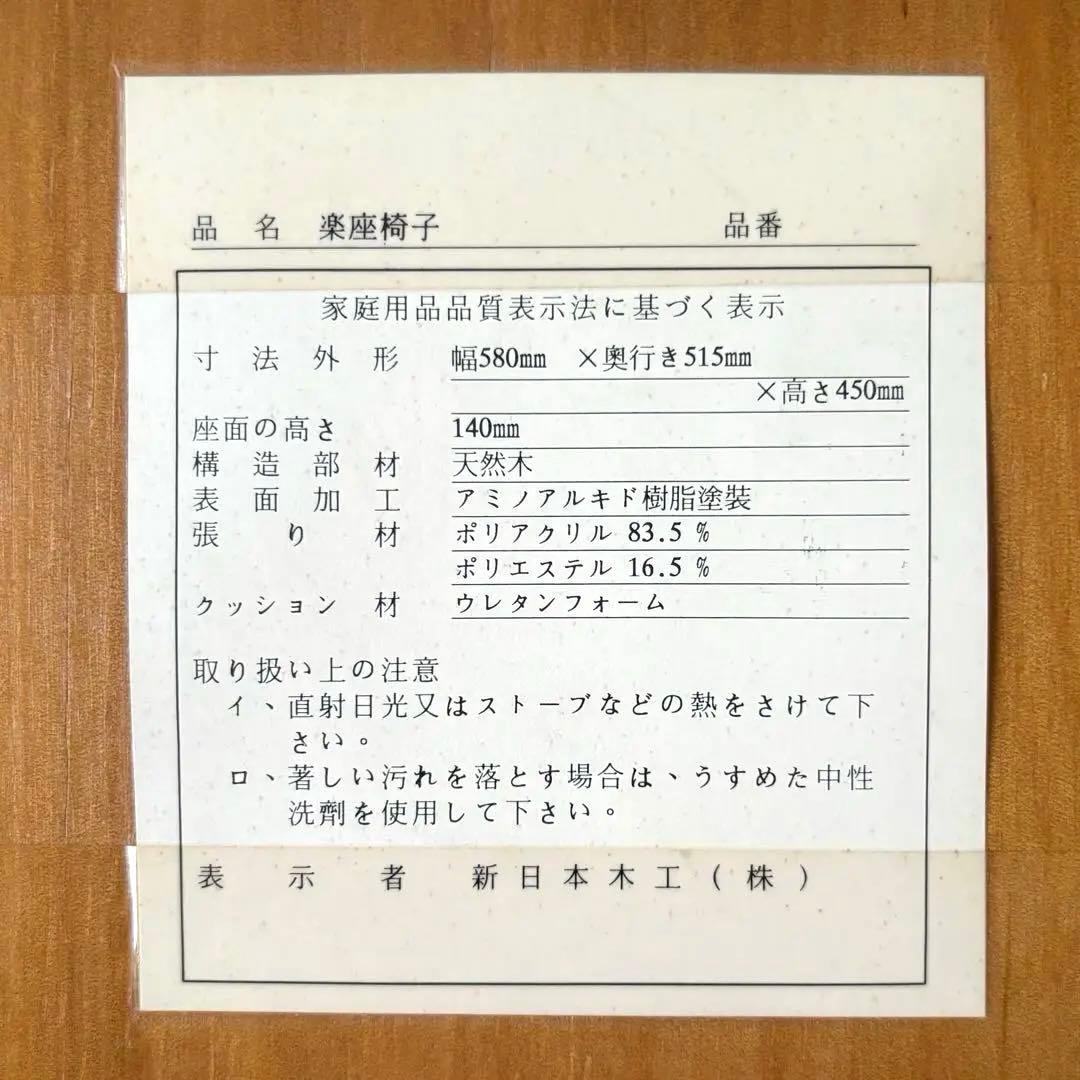 品 名 楽座椅子 品番
家庭用品品質表示法に基づく表示
寸法外形 幅580mm ×奥行き515mm
×高さ450mm
座面の高さ 140mm
構造部材 天然木
表面加工 アミノアルキド樹脂塗装
張り材 ポリアクリル 83.5 %
ポリエステル 16.5 %
クッション材 ウレタンフォーム
取り扱い上の注意
イ、直射日光又はストーブなどの熱をさけて下
さい。
ロ、著しい汚れを落とす場合は、うすめた中性
洗剤を使用して下さい。
表示者 新日本木工(株)